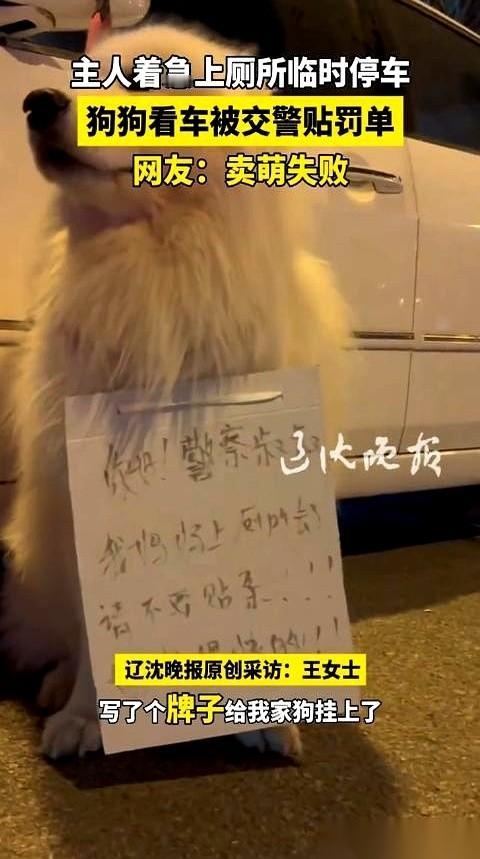 主人着急上厕所临时停车
狗狗看车被交警贴罚单
网友：卖萌失败
你好！警察叔
辽沈晚报
我妈妈上厕所去
请不要贴条...!!
的!!
辽沈晚报原创采访：王女士
写了个牌子给我家狗挂上了